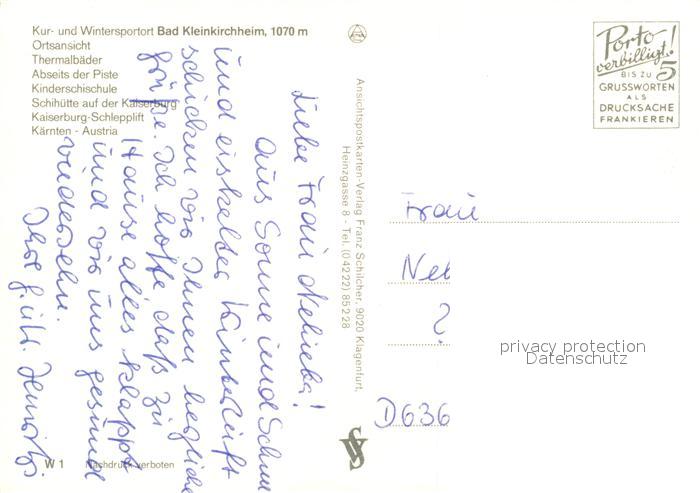 Kur- und Wintersportort Bad Kleinkirchheim, 1070 m
Ortsansicht
Thermalbäder
Abseits der Piste
Kinderschischule
Schihütte auf der Kaiserburg
Kaiserburg-Schlepplift
Kärnten - Austria
Liebe Frau
Aus Sonne und Schnee
und eiskalter Winterluft
schicken wir Ihnen herzliche
Grüße. Ich hoffe daß zu
Hause alles klappt
und wir uns gesund
wiedersehn.
Ihre
W 1 Nachdruck verboten
Ansichtspostkarten-Verlag Franz Schilcher, 9020 Klagenfurt,
Heinzgasse 8 - Tel. (04222) 85228
Porto
verbilligt!
BIS ZU 5
GRUSSWORTEN
ALS
DRUCKSACHE
FRANKIEREN
Frau
Neb
D636
privacy protection
Datenschutz